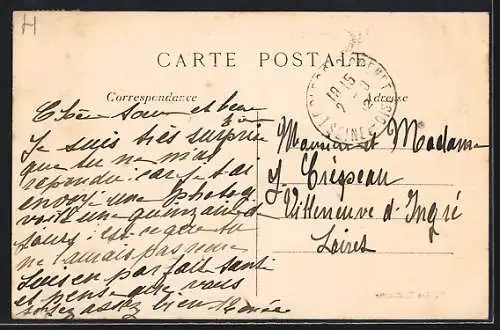 H
CARTE POSTALE
Correspondance
Adresse
19 15
SEINE-ET-OISE
Chère Soeur et beau
frère
Je suis très surprise
que tu ne m'as
répondu car je t'ai
envoyé une photog
voilà une quinzaine de
jours: est-ce que tu
ne l'aurais pas reçue
suis en parfait santé
et pense que vous
soyez assez bien Renée
Monsieur et Madame
J. Crépeau
Villeneuve d'Ingré
Loiret